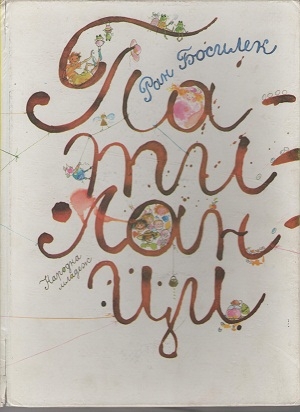 Ран Босилек
Па-
ти-
лан-
ци
Народна
младеж